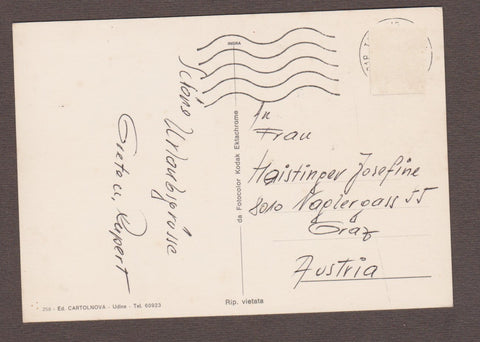 Schöne Urlaubsgrüsse
Greta u. Rupert
INDRA
da Fotocolor Kodak Ektachrome
An
Frau
Haistinger Josefine
8010 Napiergass 55
Graz
Austria
258 - Ed. CARTOLNOVA - Udine - Tel. 60923
Rip. vietata